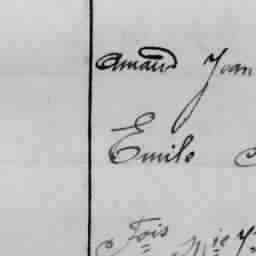 Amand Jean
Emile
Fois Mie